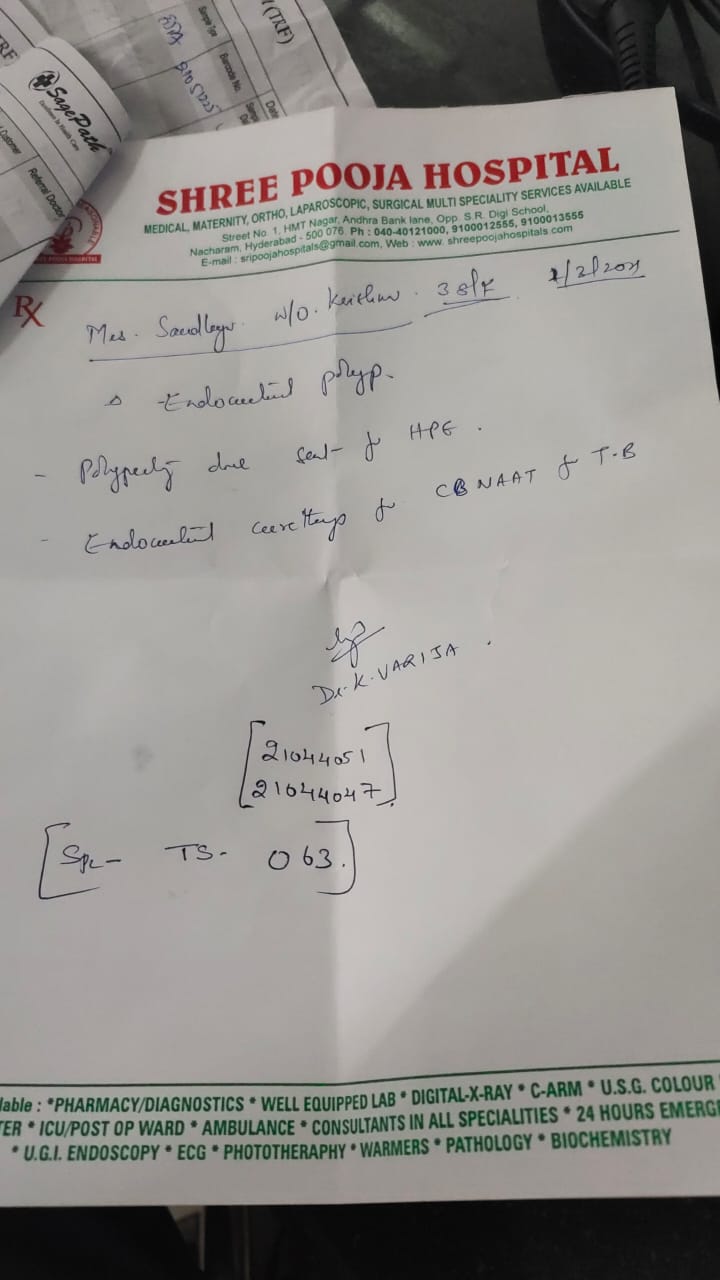 (TRF)
Sample Type
Barcode No.
EDTA 91051225
SagePath
Referral Doctor
SHREE POOJA HOSPITAL
MEDICAL, MATERNITY, ORTHO, LAPAROSCOPIC, SURGICAL MULTI SPECIALITY SERVICES AVAILABLE
Street No. 1, HMT Nagar, Andhra Bank lane, Opp. S.R. Digi School,
Nacharam, Hyderabad - 500 076. Ph : 040-40121000, 9100012555, 9100013555
E-mail : sripoojahospitals@gmail.com, Web : www. shreepoojahospitals com
Rx
Mrs. W/O. 38/F
Endometrial polyp.
- Polypectomy done sent for HPE.
- Endometrial curettings for CBNAAT for T-B
Dr. K. VARIJA.
[21044051
21044047]
[Spl- TS- 063.]
lable : *PHARMACY/DIAGNOSTICS * WELL EQUIPPED LAB * DIGITAL-X-RAY * C-ARM * U.S.G. COLOUR
TER * ICU/POST OP WARD * AMBULANCE * CONSULTANTS IN ALL SPECIALITIES * 24 HOURS EMERGE
* U.G.I. ENDOSCOPY * ECG * PHOTOTHERAPHY * WARMERS * PATHOLOGY * BIOCHEMISTRY